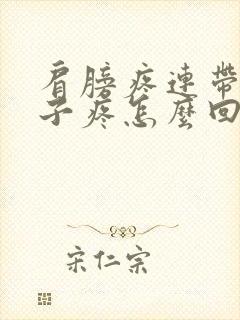 肩膀疼連帶
子疼怎麼回
宋仁宗